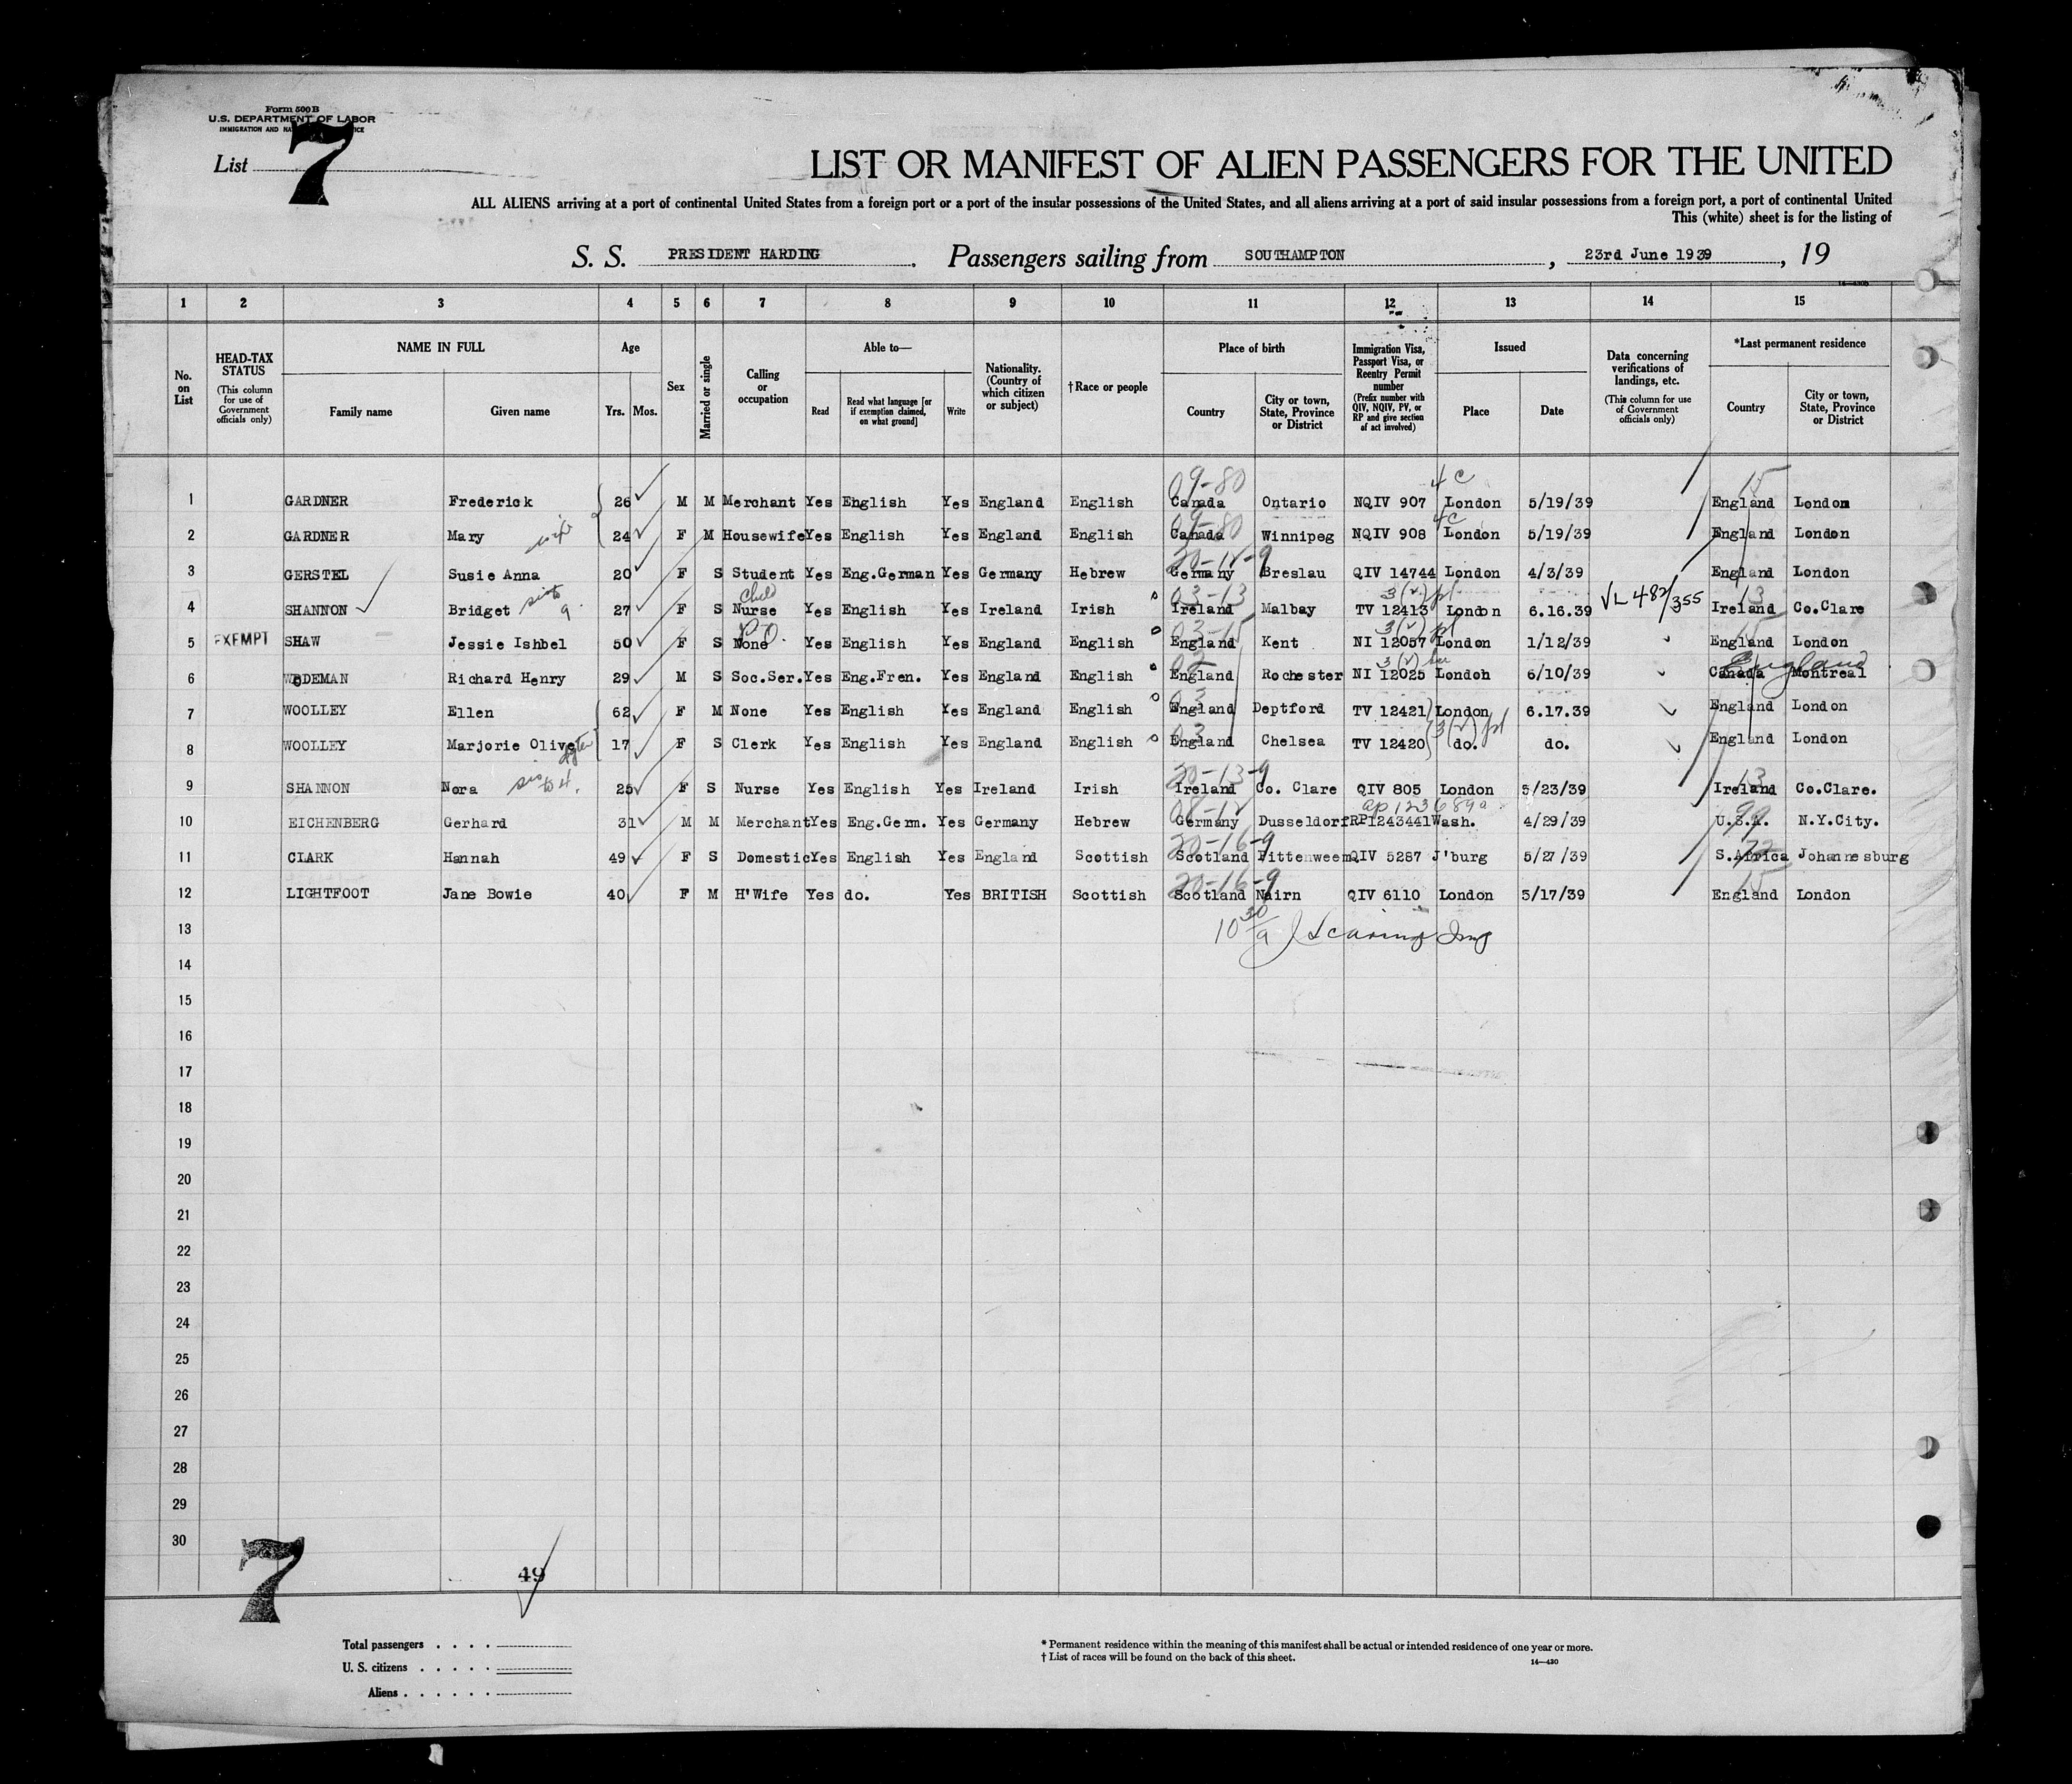 Form 500 B
U.S. DEPARTMENT OF LABOR
IMMIGRATION AND
List 7
LIST OR MANIFEST OF ALIEN PASSENGERS FOR THE UNITED
ALL ALIENS arriving at a port of continental United States from a foreign port or a port of the insular possessions of the United States, and all aliens arriving at a port of said insular possessions from a foreign port, a port of continental United
This (white) sheet is for the listing of
S. S. PRESIDENT HARDING. Passengers sailing from SOUTHAMPTON, 23rd June 1939, 19
1 2 3 4 5 6 7 8 9 10 11 12 13 14 15
No. on List
HEAD-TAX STATUS (This column for use of Government officials only)
NAME IN FULL Family name Given name
Age Yrs. Mos.
Sex
Married or single
Calling or occupation
Able to— Read Read what language [or if exemption claimed, on what ground] Write
Nationality. (Country of which citizen or subject)
†Race or people
Place of birth Country City or town, State, Province or District
Immigration Visa, Passport Visa, or Reentry Permit number (Prefix number with QIV, NQIV, PV, or RP and give section of act involved)
Issued Place Date
Data concerning verifications of landings, etc. (This column for use of Government officials only)
*Last permanent residence Country City or town, State, Province or District
09-80 4 C 15
1 GARDNER Frederick 26 M M Merchant Yes English Yes England English Canada Ontario NQIV 907 London 5/19/39 England London
09-80 4C
2 GARDNER Mary wife 24 F M Housewife Yes English Yes England English Canada Winnipeg NQIV 908 London 5/19/39 England London
3 GERSTEL Susie Anna 20 F S Student Yes Eng.German Yes Germany Hebrew Germany Breslau QIV 14744 London 4/3/39 England London
Child 03-13 3(2) pl 13
4 SHANNON Bridget 9 27 F S Nurse Yes English Yes Ireland Irish Ireland Malbay TV 12413 London 6.16.39 VL 482/355 Ireland Co.Clare
03-15 3(2) pl 15
5 EXEMPT SHAW Jessie Ishbel 50 F S None Yes English Yes England English England Kent NI 12057 London 1/12/39 England London
03 England
6 WODEMAN Richard Henry 29 M S Soc.Ser. Yes Eng.Fren. Yes England English England Rochester NI 12025 London 6/10/39 Canada Montreal
03
7 WOOLLEY Ellen 62 F M None Yes English Yes England English England Deptford TV 12421 London 6.17.39 England London
03 3(2) pl
8 WOOLLEY Marjorie Olive 17 F S Clerk Yes English Yes England English England Chelsea TV 12420 do. do. England London
20-13-9 13
9 SHANNON Nora sis to 4. 25 F S Nurse Yes English Yes Ireland Irish Ireland Co. Clare QIV 805 London 5/23/39 Ireland Co.Clare.
08-12 99
10 EICHENBERG Gerhard 31 M M Merchant Yes Eng.Germ. Yes Germany Hebrew Germany Dusseldorf RP1243441 Wash. 4/29/39 U.S.A. N.Y.City.
20-16-9
11 CLARK Hannah 49 F S Domestic Yes English Yes England Scottish Scotland Pittenweem QIV 5287 J'burg 5/27/39 S.Africa Johannesburg
20-16-9 15
12 LIGHTFOOT Jane Bowie 40 F M H'Wife Yes do. Yes BRITISH Scottish Scotland Nairn QIV 6110 London 5/17/39 England London
13
14
15
16
17
18
19
20
21
22
23
24
25
26
27
28
29
30
7
49
Total passengers . . . .
U. S. citizens . . . . .
Aliens . . . . . .
* Permanent residence within the meaning of this manifest shall be actual or intended residence of one year or more.
† List of races will be found on the back of this sheet.
14—430